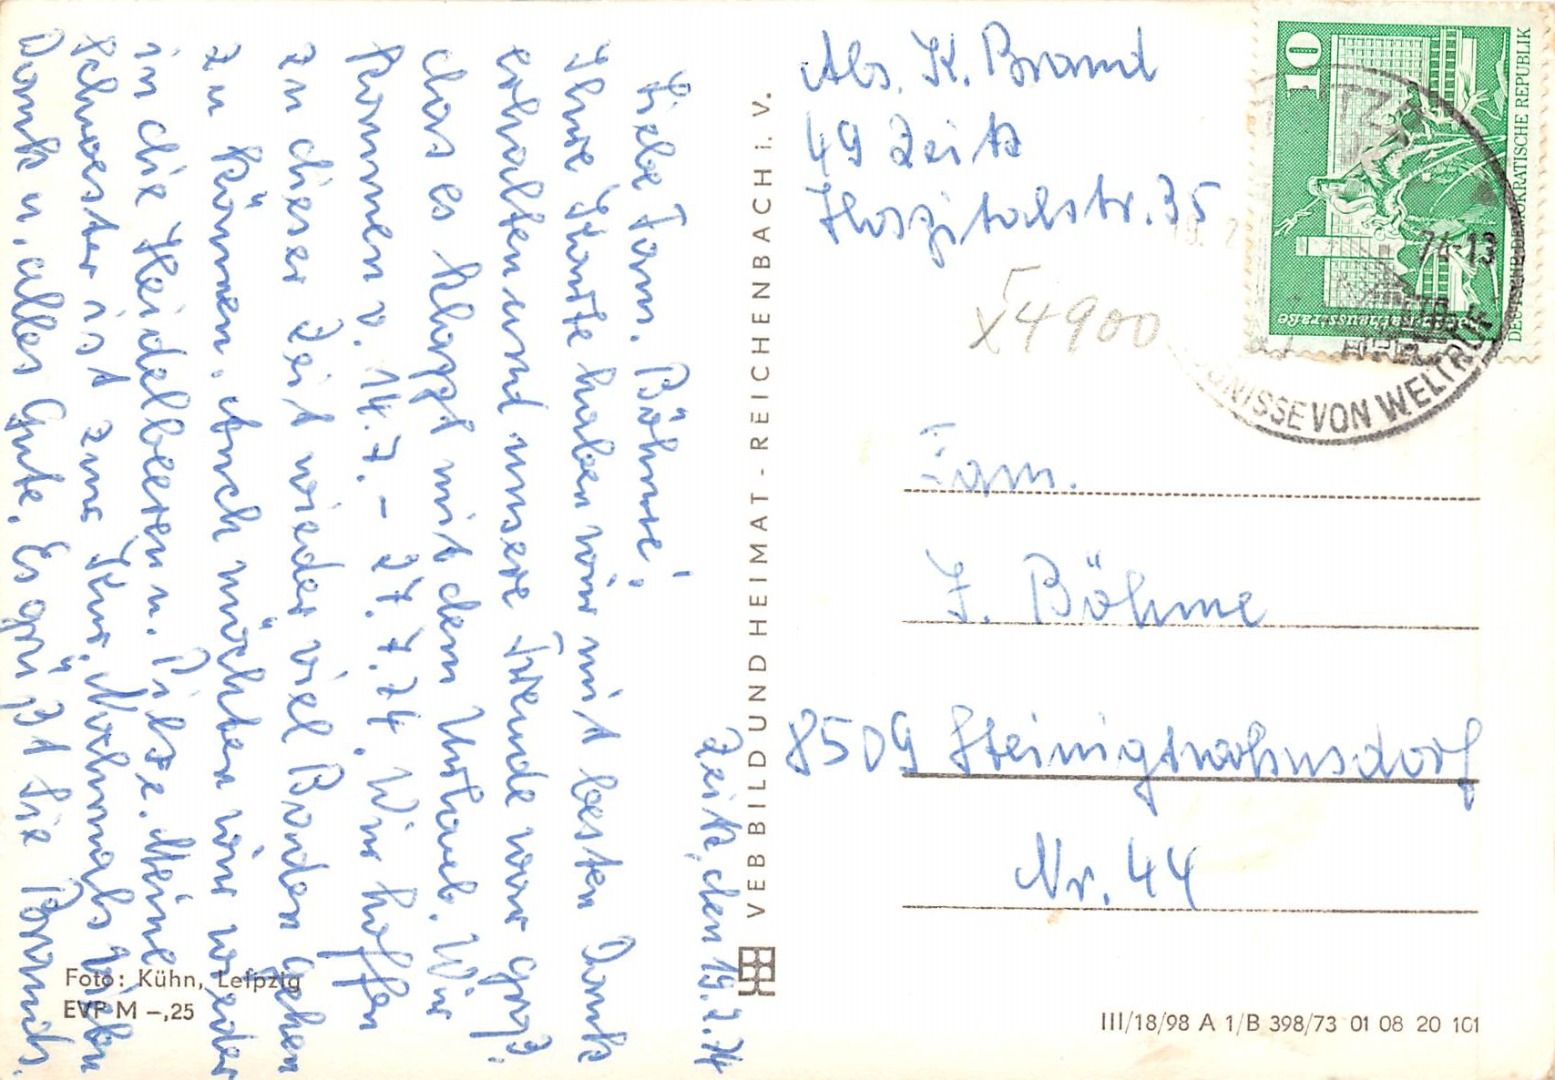 Zeitz, den 19.2.74
Liebe Fam. Böhme!
Ihre Karte haben wir mit besten Dank
erhalten und unsere Freude war groß,
das es klappt mit dem Urlaub. Wir
kommen v. 14.7. – 27.7.74. Wir hoffen
zu dieser Zeit wieder viel Baden gehen
zu können. Auch möchten wir wieder
in die Heidelbeeren u. Pilze. Meine
Schwester ist zur Kur. Nochmals vielen
Dank u. alles Gute. Es grüßt Sie Brands.
Foto: Kühn, Leipzig
EVP M –,25
VEB BILD UND HEIMAT - REICHENBACH i. V.
Abs. K. Brand
49 Zeitz
Hospitalstr. 35
X4900
10
DEUTSCHE DEMOKRATISCHE REPUBLIK
Rathausstraße
74-13
VON WELTRUF
Fam.
J. Böhme
8509 Steinigtwolmsdorf
Nr. 44
III/18/98 A 1/B 398/73 01 08 20 101